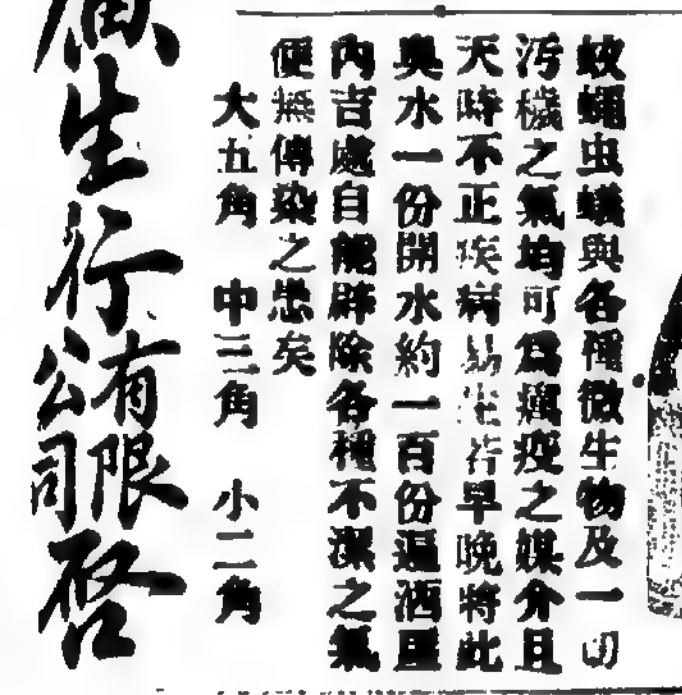 蚊蠅虫蟻與各種微生物及一切
污穢之氣均可爲癘疫之媒介且
天時不正疾病易生若早晚將此
臭水一份開水約一百份遍洒屋
內吉處自能辟除各種不潔之氣
便無傳染之患矣
大五角 中三角 小二角
廣生行有限公司啓